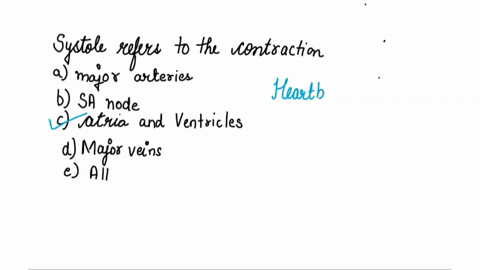 Systole refers to the contraction
a) major arteries
b) SA node
c) atria and Ventricles
d) Major veins
e) All
Heartb